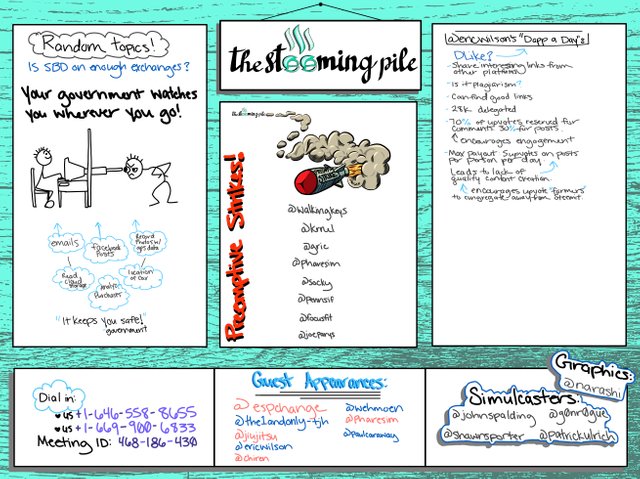 Random topics!
Is SBD on enough exchanges?
Your government watches
you wherever you go!
emails
facebook
posts
Record
Photos w/
gps data
Read
cloud
storage
analyze
Purchases
location
of car
"It keeps you safe!"
government
the steeming pile
thesteemingpile
Preemptive Strikes!
@walkingkeys
@krnul
@gric
@pharesim
@sacky
@pennsif
@focusfit
@joeparys
@ericwilson's "Dapp a Day"s
Dlike?
- Share interesting links from
other platforms
- Is it plagiarism?
- Can find good links
- 28K delegated
- 70% of upvotes reserved for
comments 30% for posts.
encourages engagement
- Max payout 5 upvotes on posts
per person per day
Leads to lack of
quality content creation.
encourages upvote farmers
to congregate away from Steemit.
Dial in:
US +1-646-558-8655
US +1-669-900-6833
Meeting ID: 468-186-430
Guest Appearances:
@espchange
@the1andonly-tjh
@jiujitsu
@ericwilson
@chiren
@wehmoen
@pharesim
@paulcaraway
Graphics:
@narashi
Simulcasters:
@johnspalding @g0nr0gue
@shawnsporter @patrickulrich